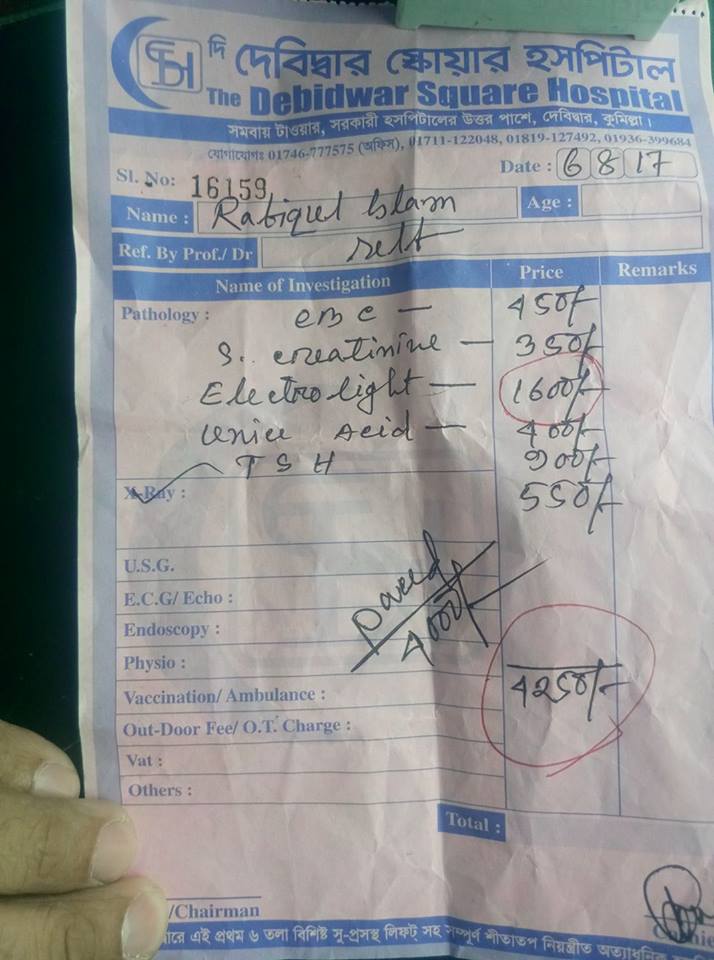 দি দেবিদ্বার স্কোয়ার হসপিটাল
The Debidwar Square Hospital
সমবায় টাওয়ার, সরকারী হসপিটালের উত্তর পাশে, দেবিদ্বার, কুমিল্লা।
যোগাযোগঃ 01746-777575 (অফিস), 01711-122048, 01819-127492, 01936-399684
Sl. No: 16159 Date : 6 8 17
Name : Rabiqul Islam Age :
Ref. By Prof./ Dr self
Name of Investigation Price Remarks
Pathology : CBC — 450/-
S. creatinine — 350/-
Electrolight — 1600/-
Uric Acid — 400/-
TSH 900/-
X-Ray : 550/-
U.S.G.
E.C.G/ Echo :
Endoscopy :
4000/-
Physio :
Vaccination/ Ambulance : 4250/-
Out-Door Fee/ O.T. Charge :
Vat :
Others :
Total :
/Chairman
এই প্রথম ৬ তলা বিশিষ্ট সু-প্রসস্থ লিফট্ সহ সম্পূর্ণ শীতাতপ নিয়ন্ত্রীত